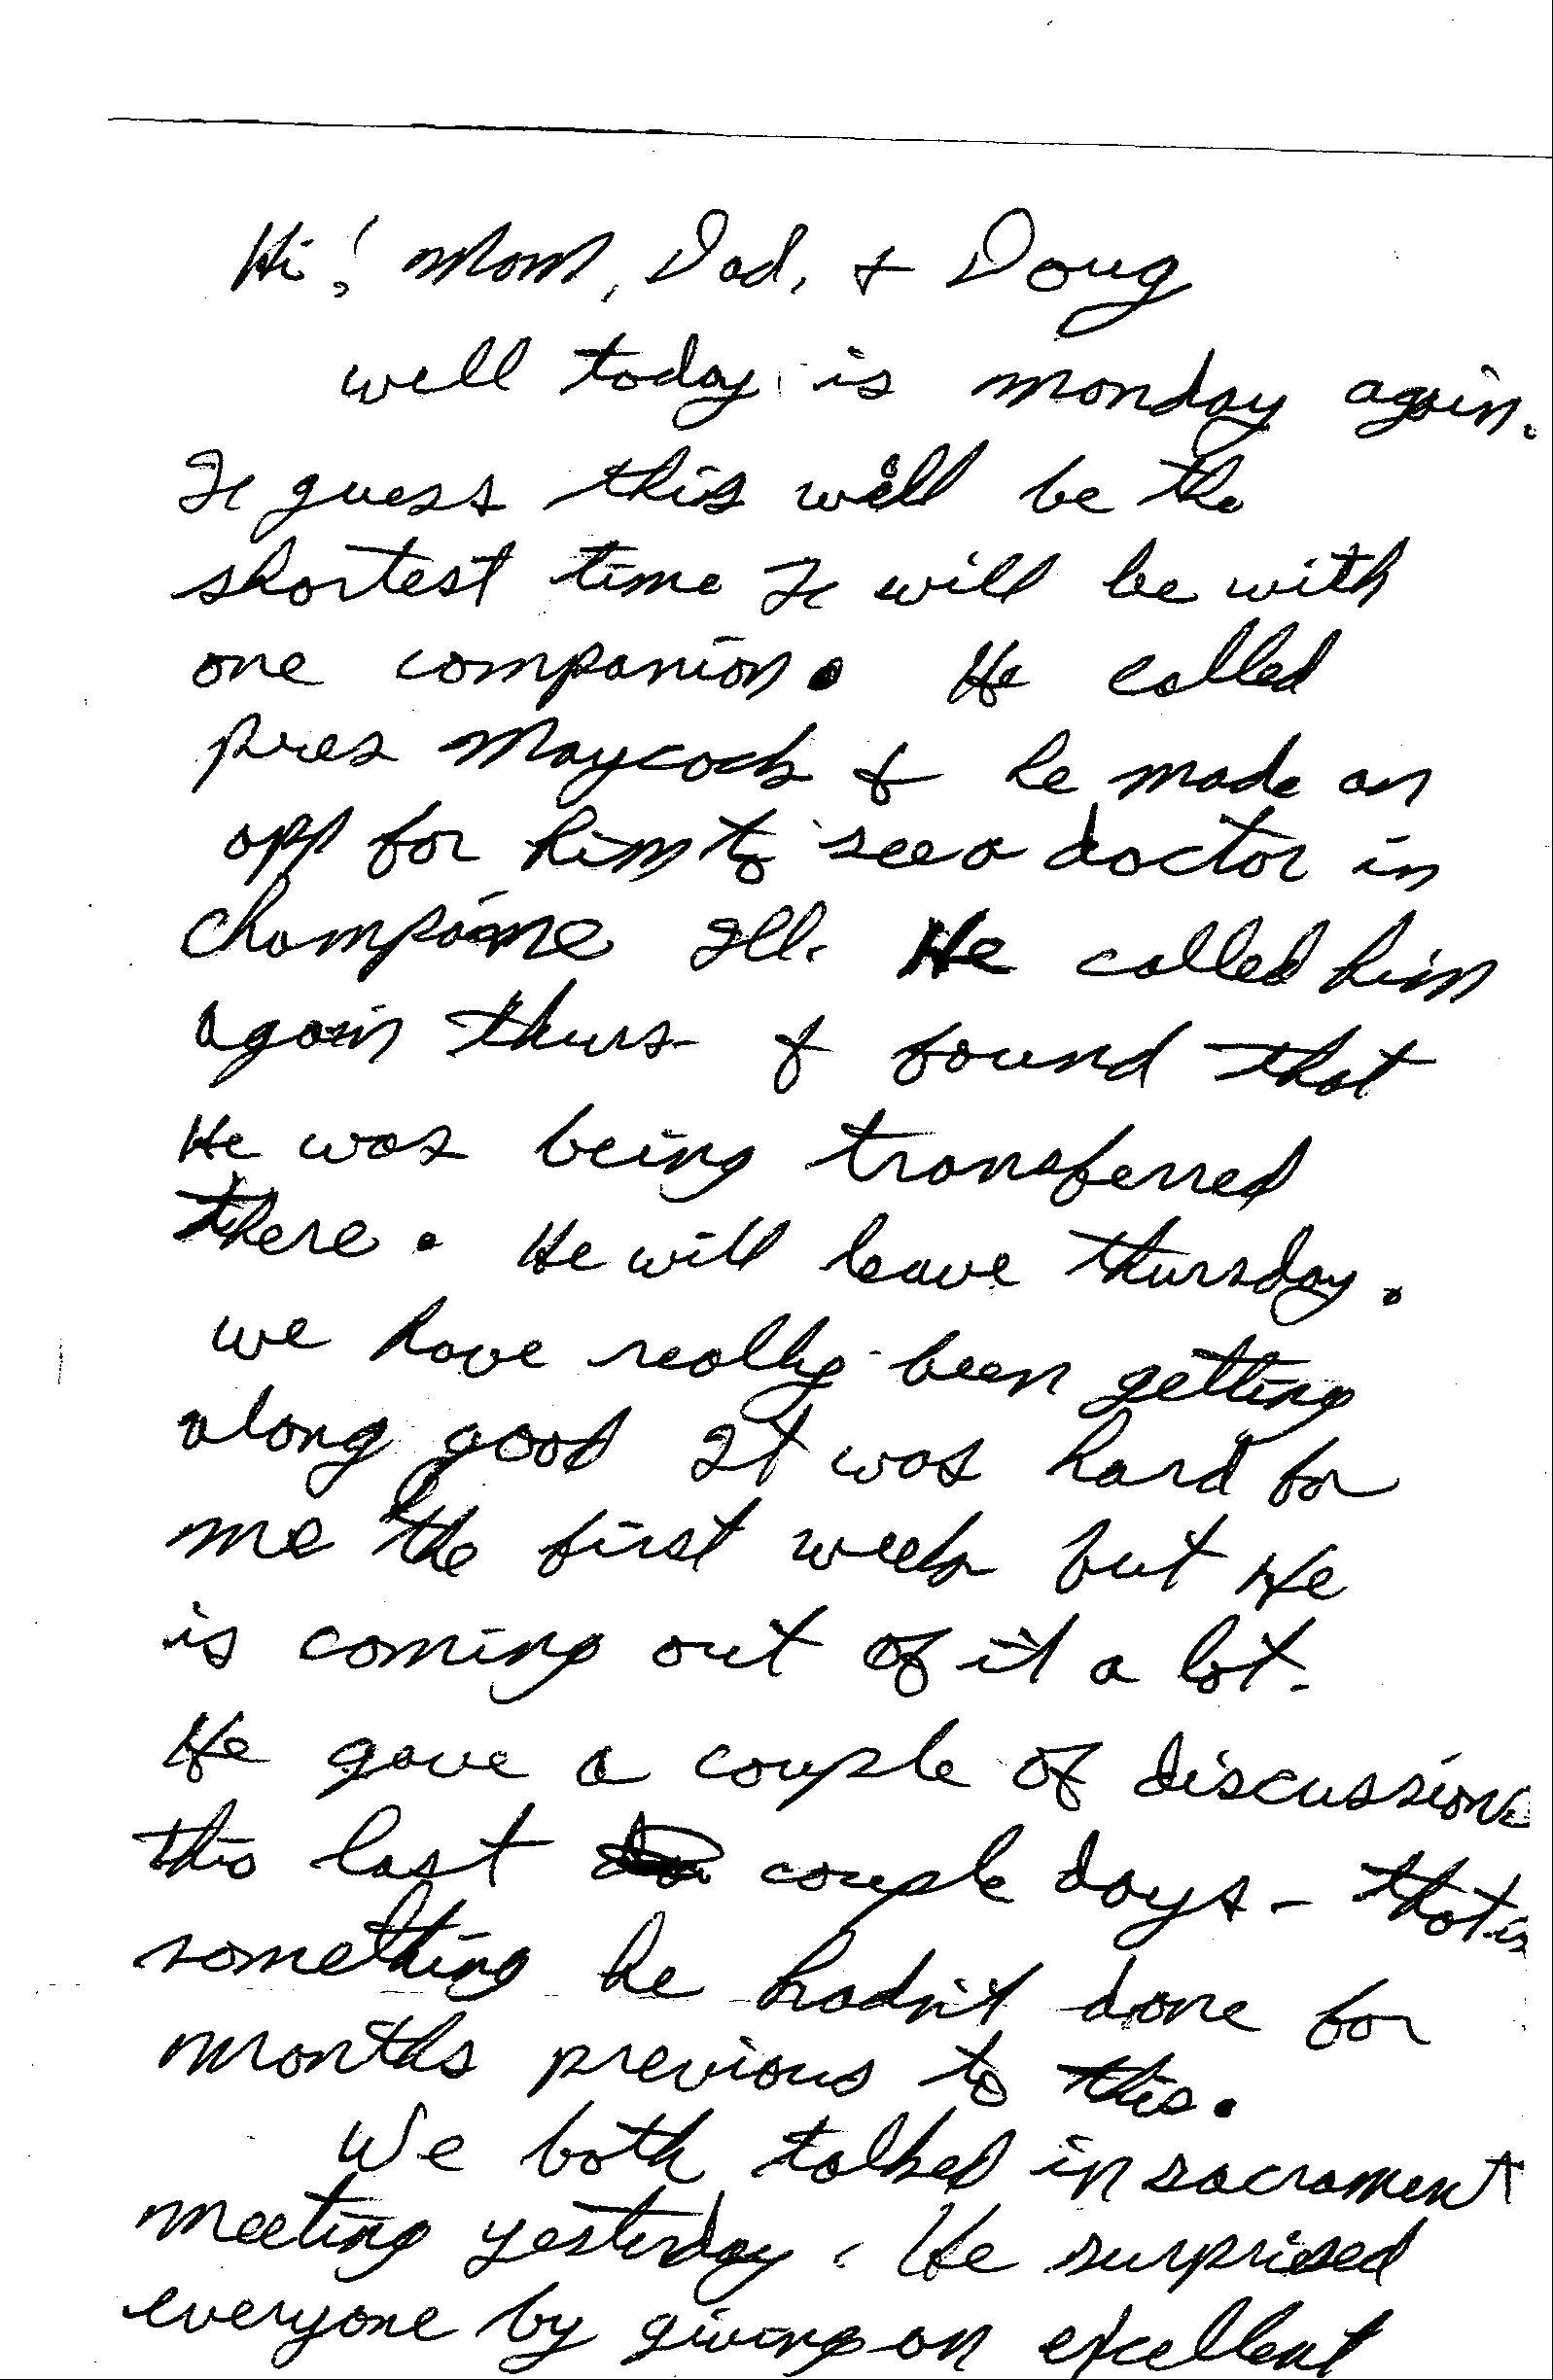 Hi! Mom, Dad, & Doug
well today is monday again.
I guess this will be the
shortest time I will be with
one companion. He called
pres Maycock & he made an
app for him to see a doctor in
Champaine Ill. He called him
again thurs. & found that
He was being transferred
there. He will leave thursday.
we have really been getting
along good It was hard for
me the first week but He
is coming out of it a lot.
He gave a couple of discussions
this last couple days - that is
something he hadn't done for
months previous to this.
We both talked in sacrament
meeting yesterday. He surprised
everyone by giving an excellent